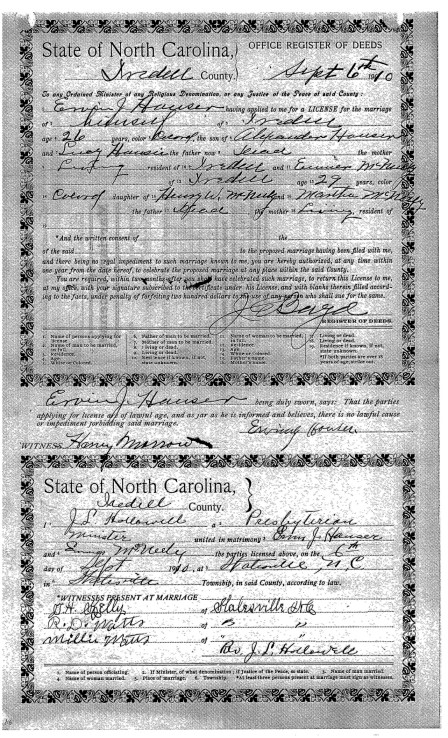 State of North Carolina, OFFICE REGISTER OF DEEDS
Iredell County. Sept 6th 1910
To any Ordained Minister of any Religious Denomination, or any Justice of the Peace of said County:
Ervin J. Hauser having applied to me for a LICENSE for the marriage
of himself of Iredell
age 26 years, color Colored, the son of Alexander Hauser
and Lucy Hauser the father now Dead the mother
resident of Iredell and Eunice McNeely
of Iredell age 27 years, color
Colored daughter of Henry W. McNeely and Martha McNeely
the father Dead the mother Living, resident of
*And the written consent of the
of the said to the proposed marriage having been filed with me,
and there being no legal impediment to such marriage known to me, you are hereby authorized, at any time within
one year from the date hereof, to celebrate the proposed marriage at any place within the said County.
You are required, within two months after you shall have celebrated such marriage, to return this License to me,
at my office, with your signature subscribed to the certificate under his License, and with blanks therein filled accord-
ing to the facts, under penalty of forfeiting two hundred dollars to the use of any person who shall sue for the same.
J. E. Boyd
REGISTER OF DEEDS.
Ervin J. Hauser being duly sworn, says: That the parties
applying for license are of lawful age, and as far as he is informed and believes, there is no lawful cause
or impediment forbidding said marriage.
WITNESS Harry Morrow
State of North Carolina, }
Iredell County.
I, J. L. Hollowell a Presbyterian
Minister united in matrimony Ervin J. Hauser
and McNeely the parties licensed above, on the 6th
day of Sept 1910, at Statesville, N.C.
in Statesville Township, in said County, according to law.
*WITNESSES PRESENT AT MARRIAGE
Kelly of Statesville N.C.
R. D. Watts of " "
Millie Watts of
Rev. J. L. Hollowell
1. Name of person officiating. 2. If Minister, of what denomination; if Justice of the Peace, so state. 3. Name of man married.
4. Name of woman married. 5. Place of marriage. 6. Township. *At least three persons present at marriage must sign as witnesses.